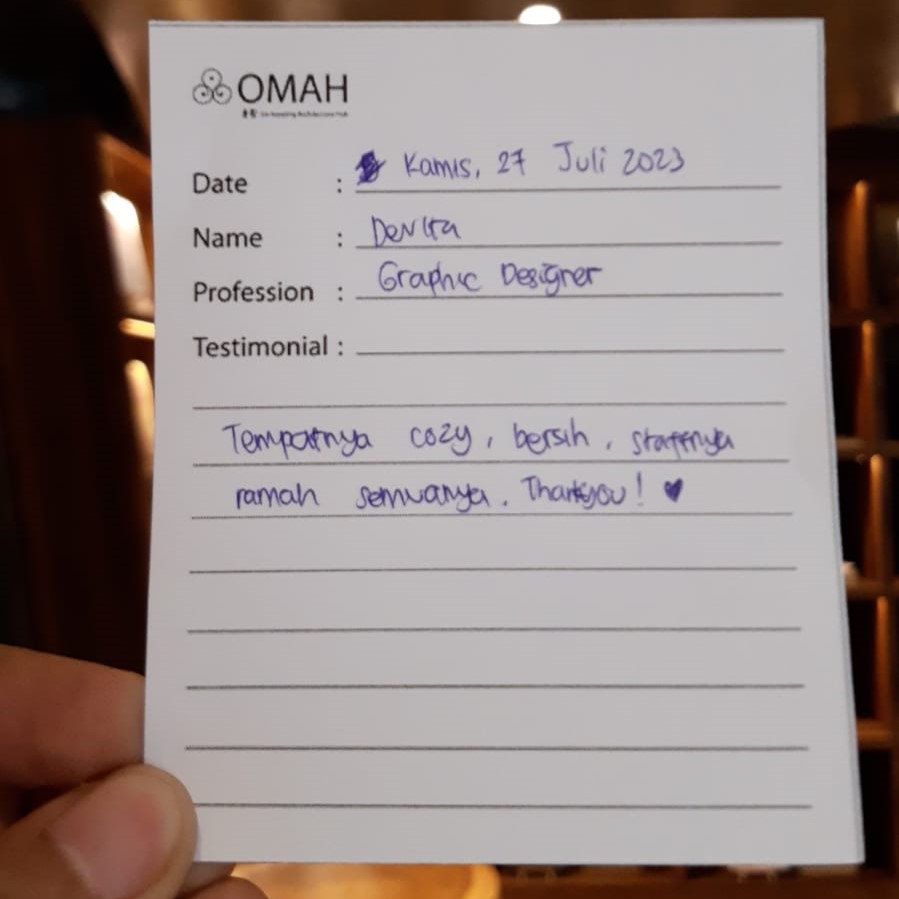 OMAH
Date : Kamis, 27 Juli 2023
Name : Devita
Profession : Graphic Designer
Testimonial :
Tempatnya cozy, bersih, staffnya
ramah semuanya. Thankyou! ♥